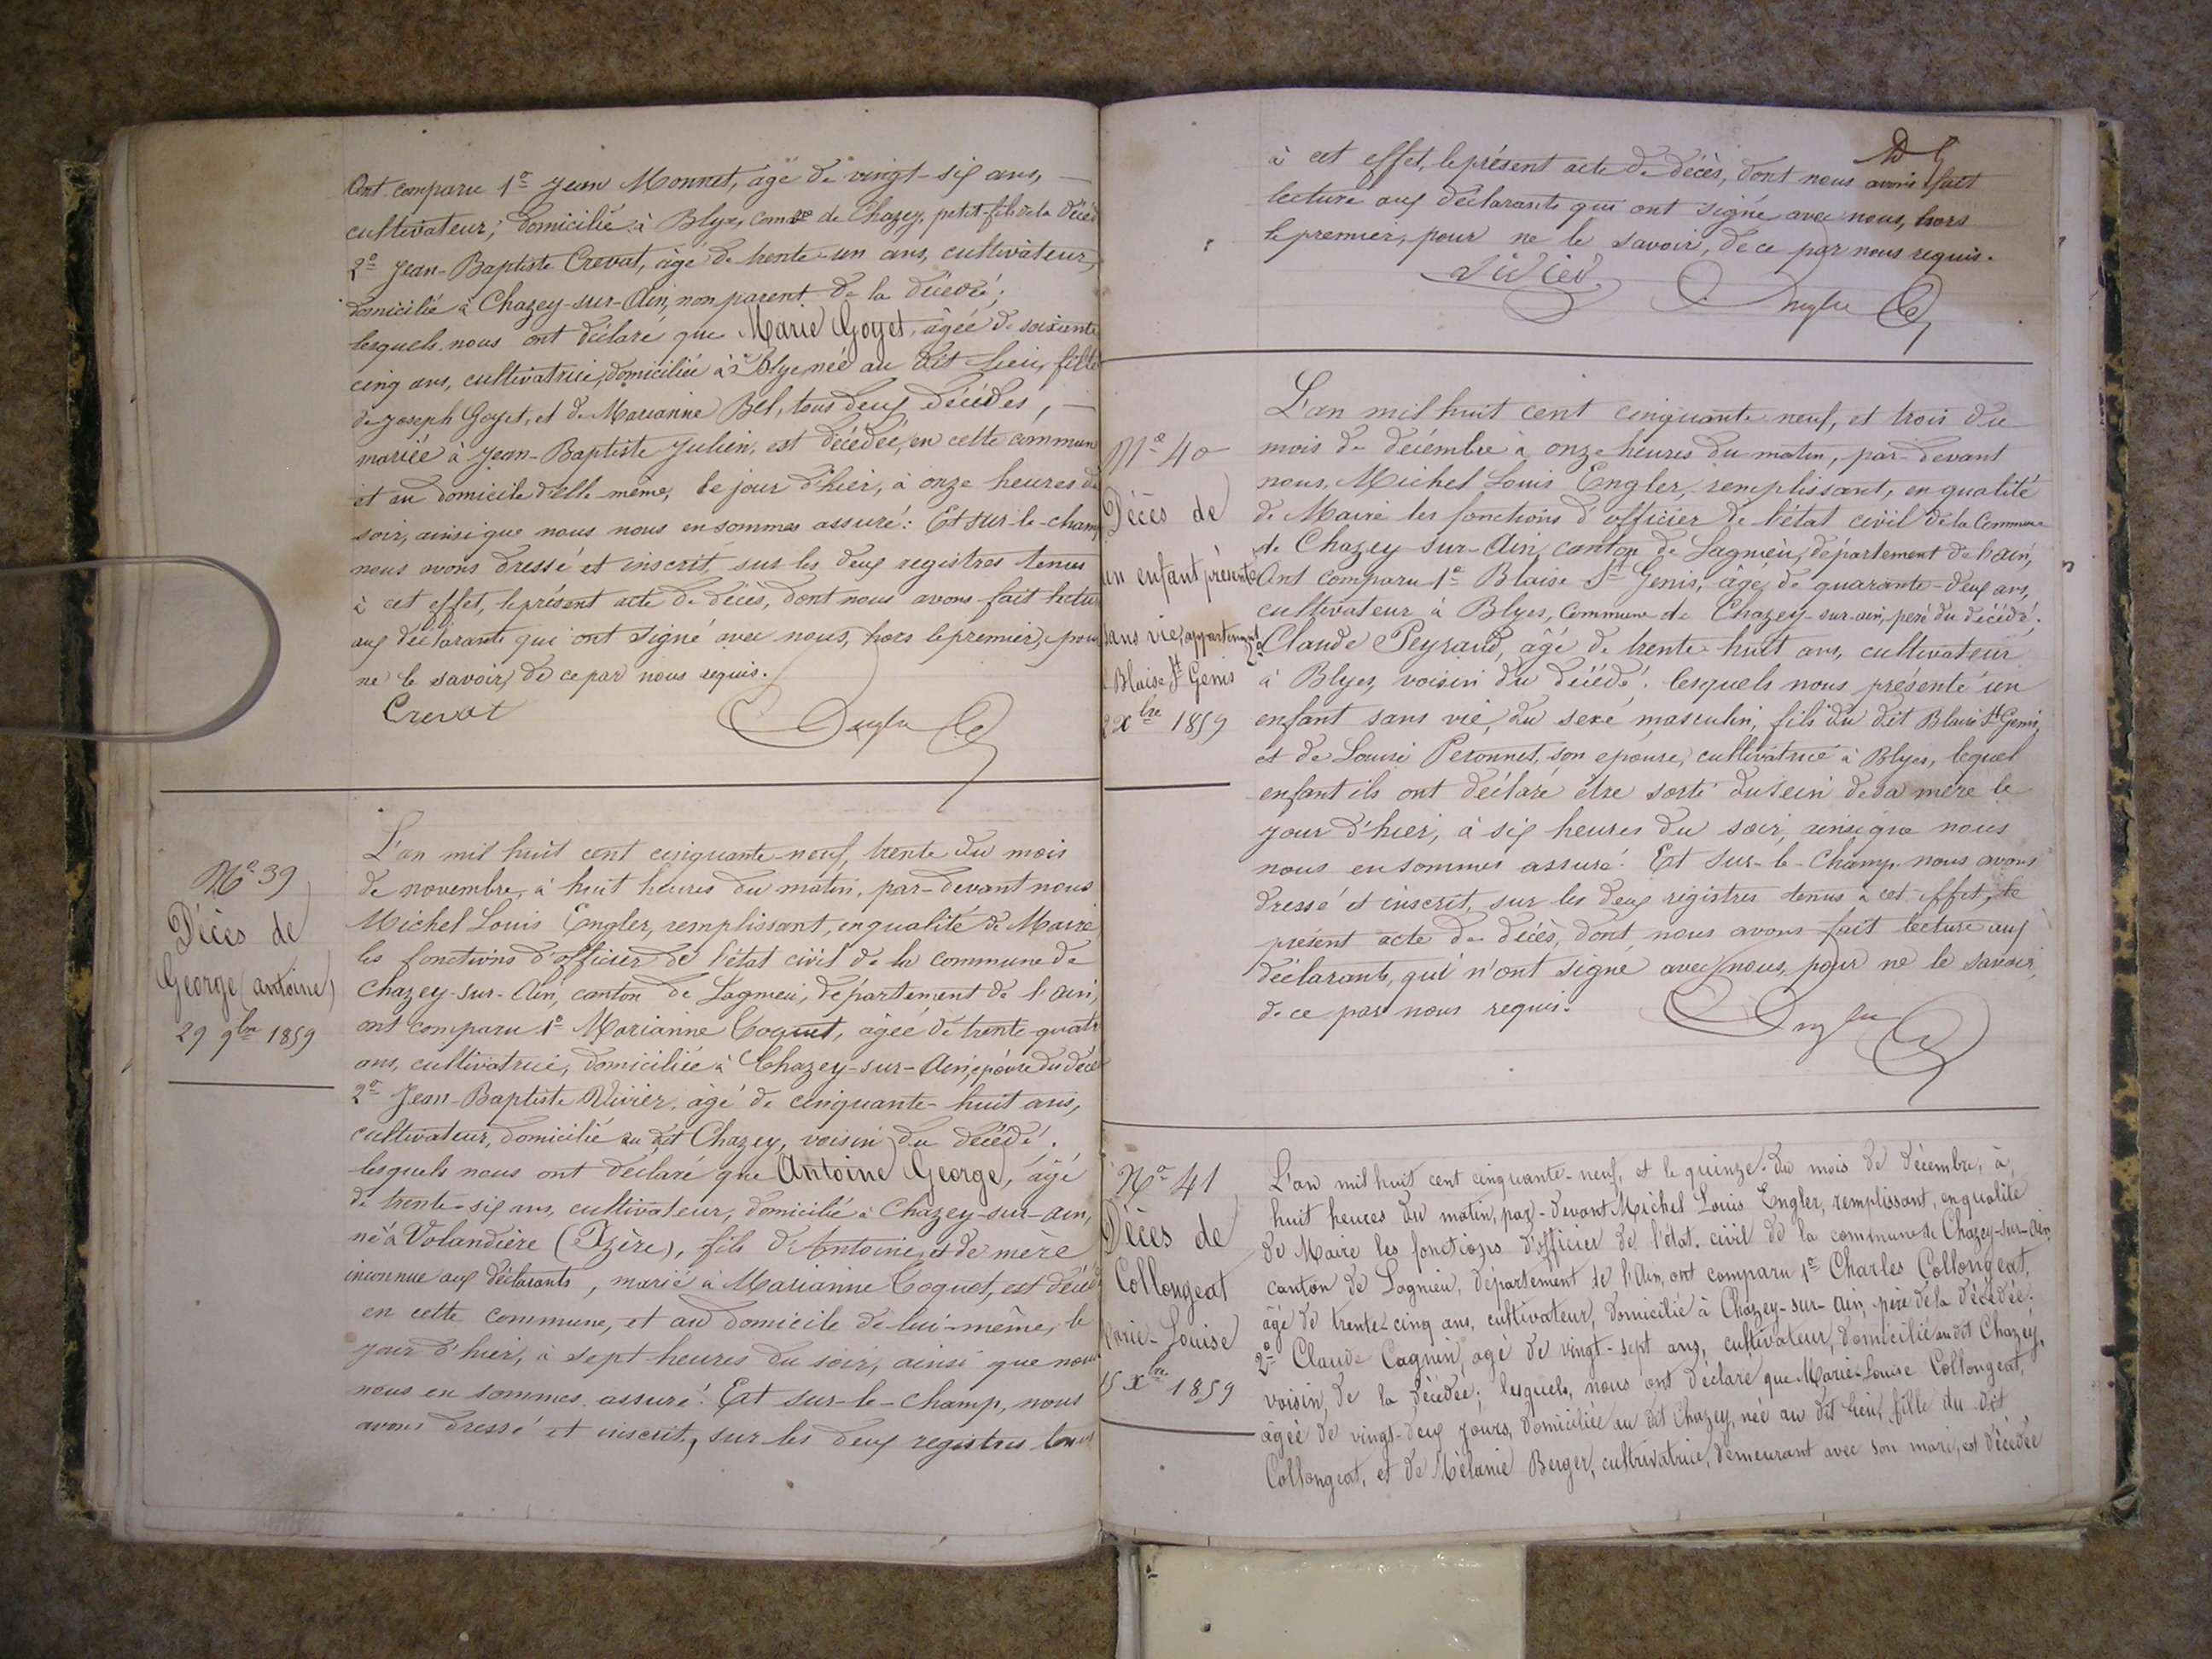 Ont comparu 1º Jean Monnet, âgé de vingt-six ans,
cultivateur, domicilié à Blye, comne de Chazey, petit-fils de la décéd
2º Jean-Baptiste Crevat, âgé de trente-un ans, cultivateur,
domicilié à Chazey-sur-Ain, non parent de la décédé;
lesquels nous ont déclaré que Marie Goyet, âgée de soixante
cinq ans, cultivatrice, domiciliée à Blye, née au dit lieu, fille
de Joseph Goyet, et de Marianne Bel, tous deux décédés,
mariée à Jean-Baptiste Julien, est décédée, en cette commun
et au domicile d'elle-même, le jour d'hier, à onze heures du
soir, ainsi que nous nous en sommes assuré: Et sur-le-champ
nous avons dressé et inscrit, sur les deux registres tenus
à cet effet, le présent acte de décès, dont nous avons fait lectur
aux déclarants qui ont signé avec nous, hors le premier, pour
ne le savoir, de ce par nous requis.
Crevat Engler
Nº 39
Décès de
George (antoine)
29 9bre 1859
L'an mil huit cent cinquante-neuf, trente du mois
de novembre, à huit heures du matin, par-devant nous
Michel Louis Engler, remplissant, en qualité de Maire
les fonctions d'officier de l'état civil de la commune de
Chazey-sur-Ain, canton de Lagnieu, département de l'ain,
ont comparu 1º Marianne Coquet, âgée de trente-quatr
ans, cultivatrice, domiciliée à Chazey-sur-Ain, épouse du décé
2º Jean-Baptiste Vivier, âgé de cinquante-huit ans,
cultivateur, domicilié au dit Chazey, voisin du décédé.
lesquels nous ont déclaré que Antoine George, âgé
de trente-six ans, cultivateur, domicilié à Chazey-sur-ain,
né à Volandière (Izère), fils d'Antoine, et de mère
inconnue aux déclarants, marié à Marianne Coquet, est décéd
en cette commune, et au domicile de lui-même, le
jour d'hier, à sept heures du soir, ainsi que nous
nous en sommes assuré! Et sur-le-champ, nous
avons dressé et inscrit, sur les deux registres tenus
à cet effet, le présent acte de décès, dont nous avons fait
lecture aux déclarants qui ont signé avec nous, hors
le premier, pour ne le savoir, de ce par nous requis.
Engler
Nº 40
Décès de
un enfant présenté
sans vie, appartenant
à Blaise St Genis
2 Xbre 1859
L'an mil huit cent cinquante neuf, et trois du
mois de décembre à onze heures du matin, par-devant
nous, Michel Louis Engler, remplissant, en qualité
de Maire les fonctions d'officier de l'état civil de la Commune
de Chazey-sur-Ain, canton de Lagnieu, département de l'ain,
Ont comparu 1º Blaise St Genis, âgé de quarante-deux ans,
cultivateur à Blyes, Commune de Chazey-sur-ain, père du décédé.
2º Claude Peyraud, âgé de trente-huit ans, cultivateur
à Blyes, voisin du décédé. lesquels nous présenté un
enfant sans vie, du sexe masculin, fils du dit Blaise St Genis,
et de Louise Peronnet, son epouse, cultivatrice à Blyes, lequel
enfant ils ont déclaré être sorti du sein de sa mère le
jour d'hier, à six heures du soir, ainsi que nous
nous en sommes assuré! Et sur-le-Champ nous avons
dressé et inscrit, sur les deux registres tenus à cet effet, le
présent acte de décès, dont nous avons fait lecture aux
déclarants, qui n'ont signé avec nous, pour ne le savoir,
de ce par nous requis.
Engler
Nº 41
Décès de
Collongeat
Marie-Louise
15 Xbre 1859
L'an mil huit cent cinquante-neuf, et le quinze du mois de décembre, à
huit heures du matin, par-devant Michel Louis Engler, remplissant, en qualité
de Maire les fonctions d'officier de l'état civil de la commune de Chazey-sur-Ain,
canton de Lagnieu, département de l'Ain, ont comparu 1º Charles Collongeat,
âgé de trente-cinq ans, cultivateur, domicilié à Chazey-sur-Ain, père de la décédée.
2º Claude Cagnin, agé de vingt-sept ans, cultivateur, domicilié au dit Chazey,
voisin de la décédée; lesquels, nous ont déclaré que Marie-Louise Collongeat,
âgée de vingt-deux jours, domiciliée au dit Chazey, née au dit lieu, fille du dit
Collongeat, et de Mélanie Berger, cultivatrice, demeurant avec son mari, est décédée